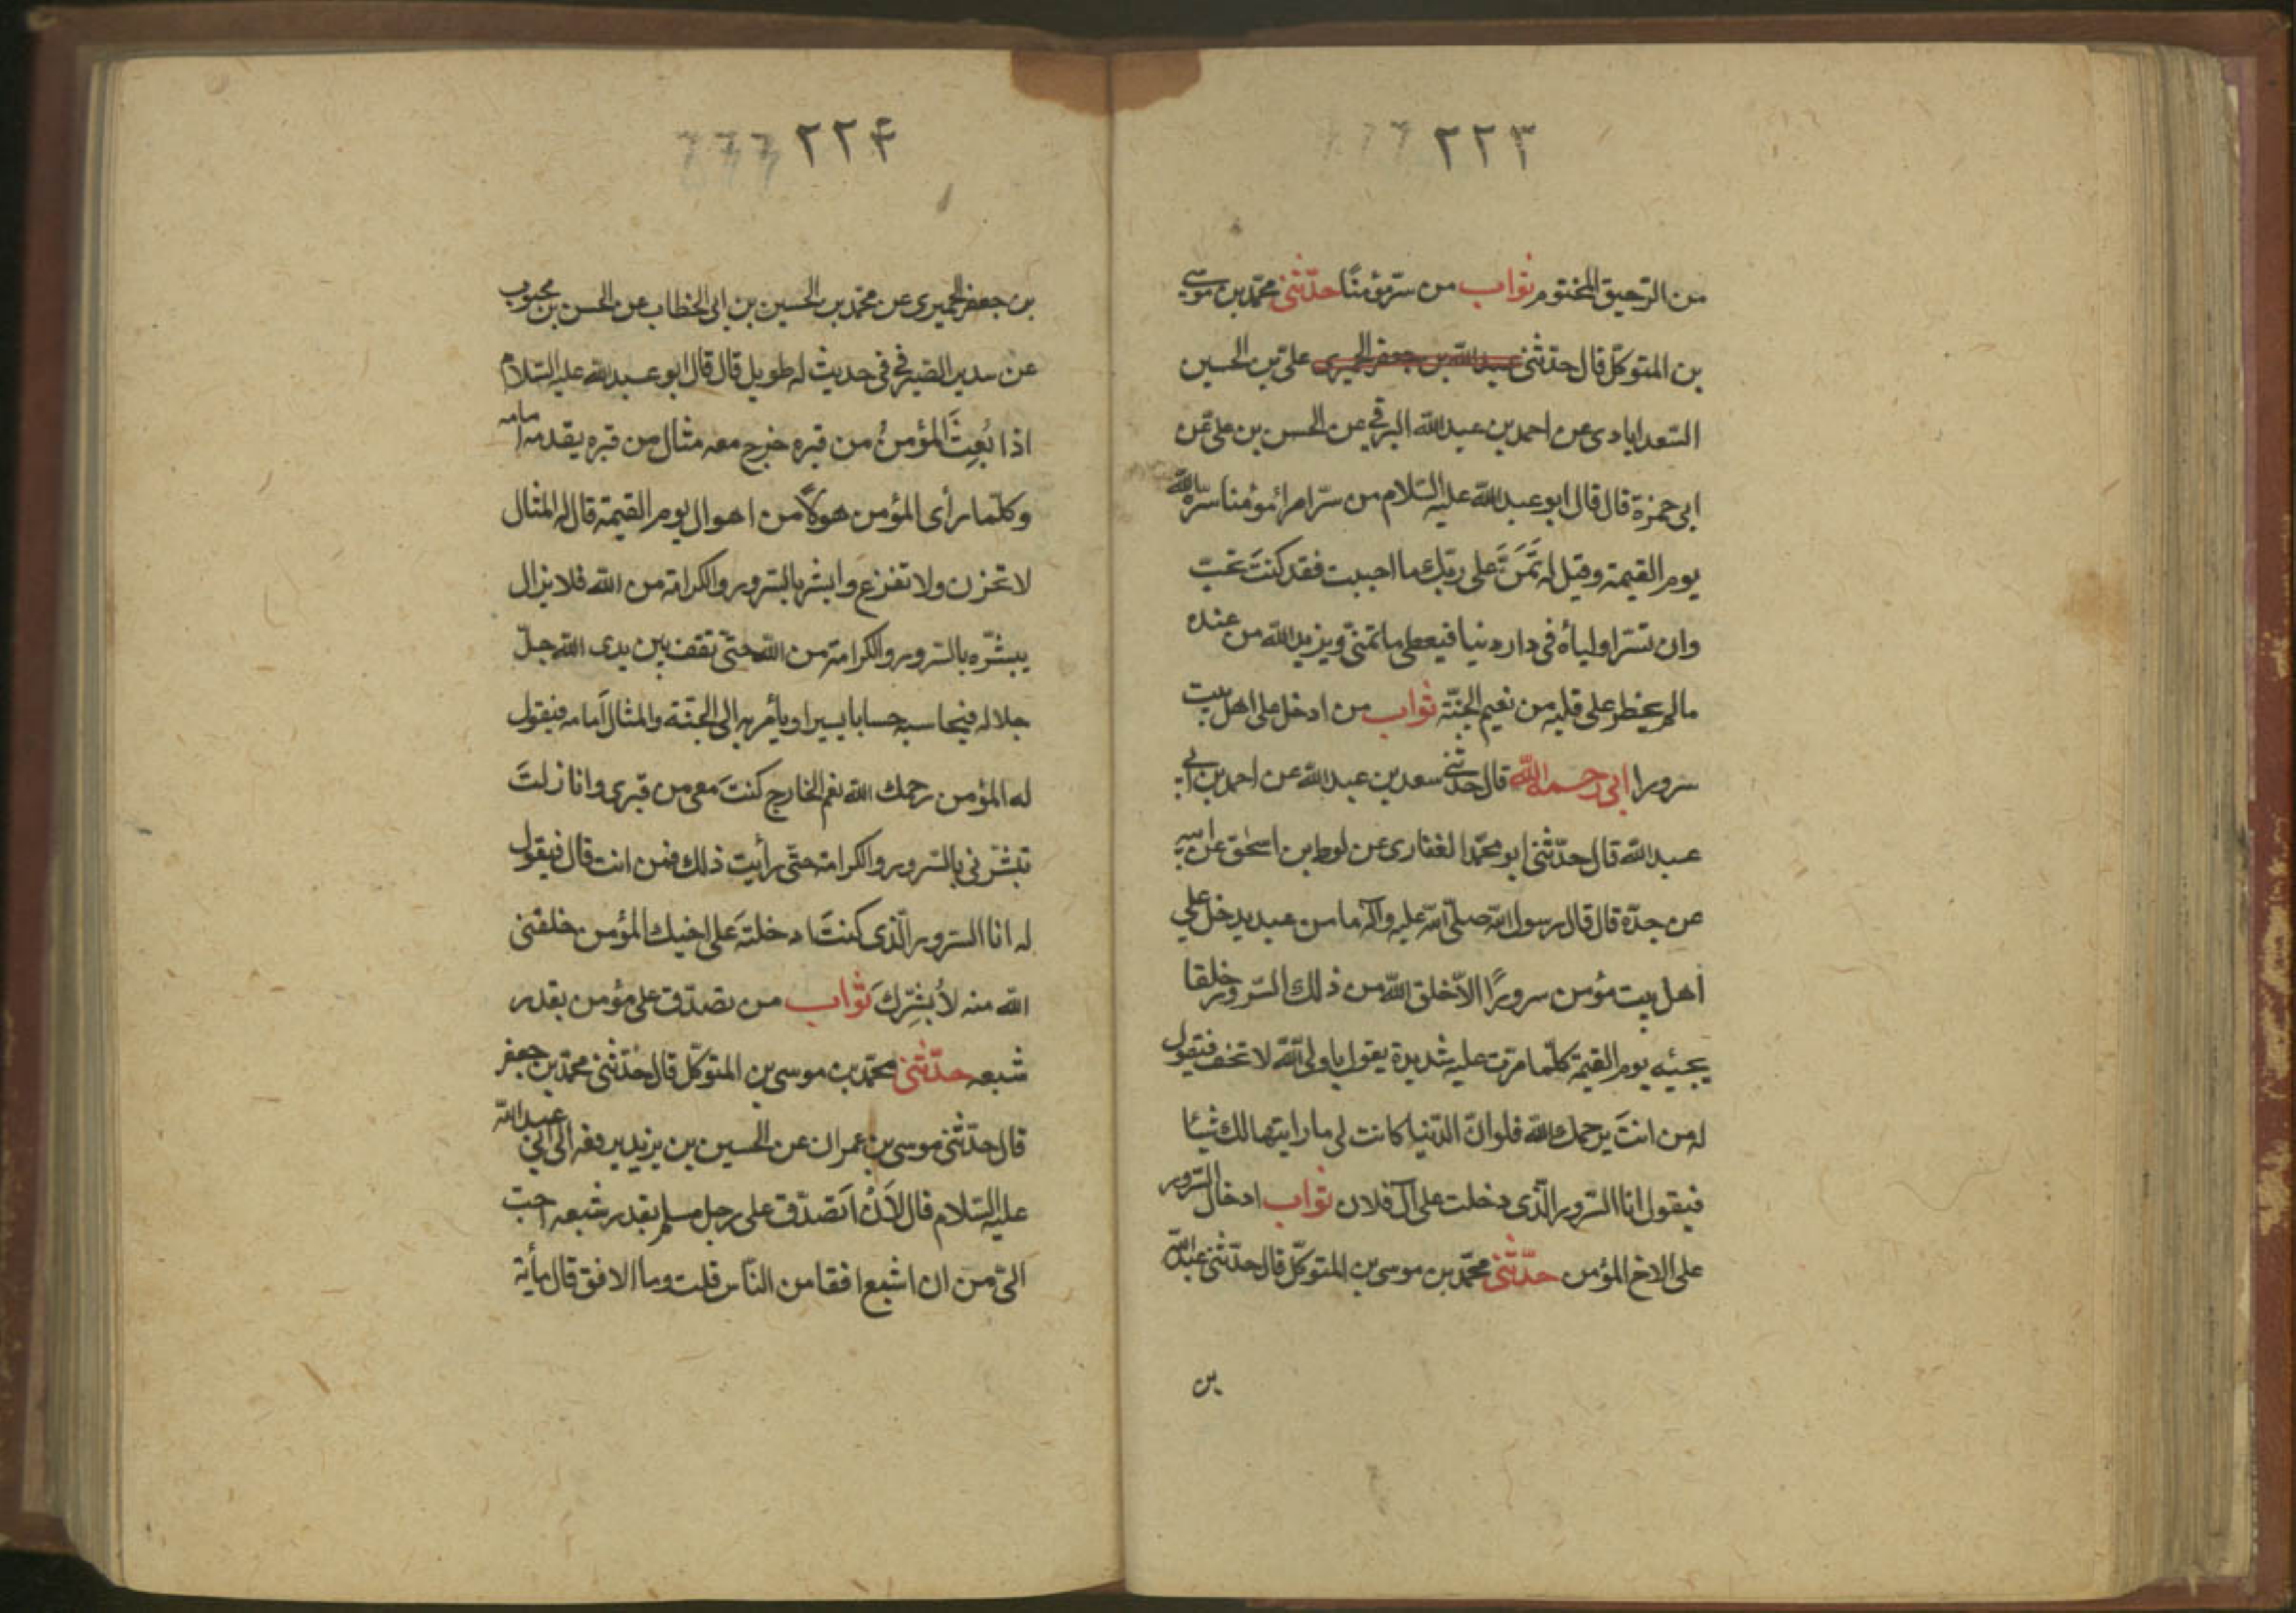 ٢٢٣
من الرّحيق المختوم ثواب من سرّ مؤمنًا حدّثنى محمّد بن موسى
بن المتوكّل قال حدّثنى عبد الله بن جعفر الحميرى علىّ بن الحسين
السّعدابادى عن احمد بن عبد الله البرقى عن الحسن بن علىّ عن
ابى حمزة قال قال ابو عبد الله عليه السّلام من سرّ امرأ مؤمنا سرّه الله
يوم القيمة وقيل له تَمَنَّ على ربّك ما احببت فقد كنتَ تحبّ
وان تسرّ اولياءه فى دار دنيا فيعطى ما تمنّى ويزيد الله من عنده
مالم يخطر على قلبه من نعيم الجنّة ثواب من ادخل على اهل بيت
سرورا ابى رحمه الله قال حدّثنى سعد بن عبد الله عن احمد بن ابى
عبد الله قال حدّثنى ابو محمّد الغفارى عن لوط بن اسحق عن ابيه
عن جدّه قال قال رسول الله صلّى الله عليه وآله ما من عبد يدخل على
اهل بيت مؤمن سرورًا الاّ خلق الله من ذلك السّرور خلقا
يجيئه يوم القيمة كلّما مرّت عليه شديدة يقول يا ولىّ الله لا تخف فيقول
له من انتَ يرحمك الله فلو انّ الدّنيا كانت لى ما رايتها لك شيئا
فيقول انا السّرور الّذى دخلت على آل فلان ثواب ادخال السّرور
على الاخ المؤمن حدّثنى محمّد بن موسى بن المتوكّل قال حدّثنى عبد الله
بن
٢٢۴
بن جعفر الحميرى عن محمّد بن الحسين بن ابى الخطاب عن الحسن بن محبوب
عن سدير الصّيرفى فى حديث له طويل قال قال ابو عبد الله عليه السّلام
اذا بُعِثَ المؤمنُ من قبره خرج معه مثال من قبره يقدمه امامه
وكلّما رأى المؤمن هولاً من اهوال يوم القيمة قال له المثال
لا تحزن ولا تفزع وابشر بالسّرور والكرامة من الله فلا يزال
يبشّره بالسّرور والكرامة من الله حتّى تقف بين يدى الله جلّ
جلاله فيحاسبه حسابا يسيرا ويأمر به الى الجنّة والمثال اَمامه فيقول
له المؤمن رحمك الله نعم الخارج كنتَ معى من قبرى وانا زلتَ
تبشّرنى بالسّرور والكرامة حتّى رأيت ذلك فمن انت قال فيقول
له انا السّرور الّذى كنتَ ادخلتَه على اخيك المؤمن خلقنى
الله منه لأُبشِّركَ ثواب من تصدّق على مؤمن بقدر
شبعه حدّثنى محمّد بن موسى بن المتوكّل قال حدّثنى محمّد بن جعفر
قال حدّثنى موسى بن عمران عن الحسين بن يزيد يرفعه الى ابى عبد الله
عليه السّلام قال لاَنْ اَتصدّق على رجل مسلم بقدر شبعه احبّ
الىّ من ان اشبع افقا من النّاس قلت وما الافق قال مأية